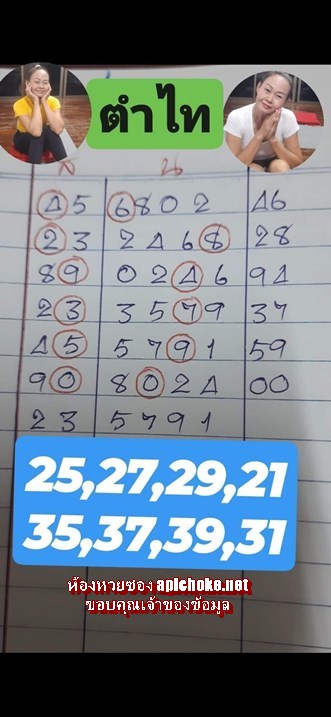 ตำไท
ส น
45 6802 46
23 2468 28
89 0246 94
23 3579 37
45 5791 59
90 8024 00
23 5791
25,27,29,21
35,37,39,31
ห้องหวยซอง apichoke.net
ขอบคุณเจ้าของข้อมูล